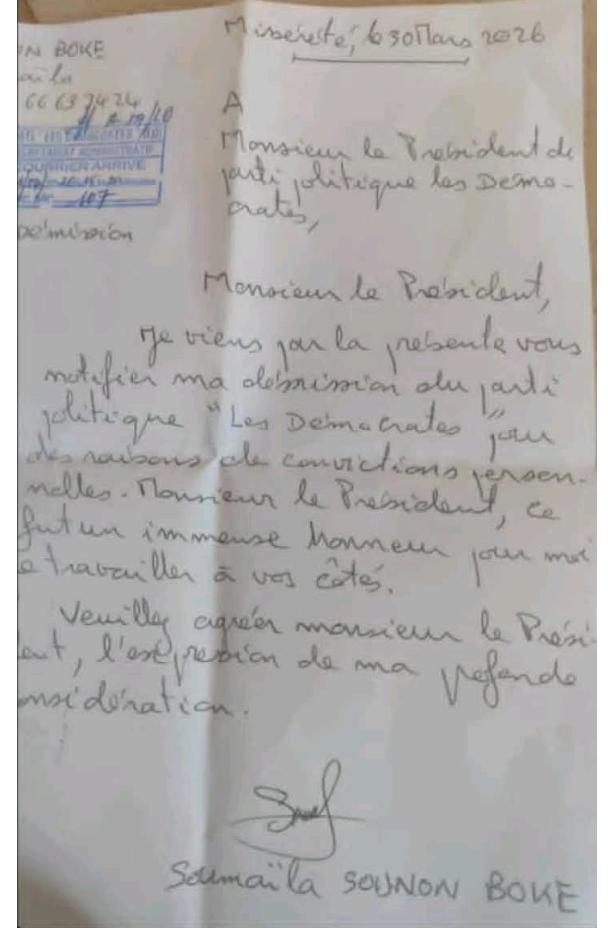 Misséreté, le 30 Mars 2026
ON BOKE
aïla
66 63 74 24
COURRIER ARRIVE
107
Démission
A
Monsieur le Président du
parti politique les Démo-
crates,
Monsieur le Président,
Je viens par la présente vous
notifier ma démission du parti
politique "Les Démocrates" pour
des raisons de convictions person-
nelles. Monsieur le Président, ce
fut un immense honneur pour moi
e travailler à vos côtés.
Veuillez agréer monsieur le Prési-
dent, l'expression de ma profonde
onsidération.
Soumaïla SOUNON BOKE